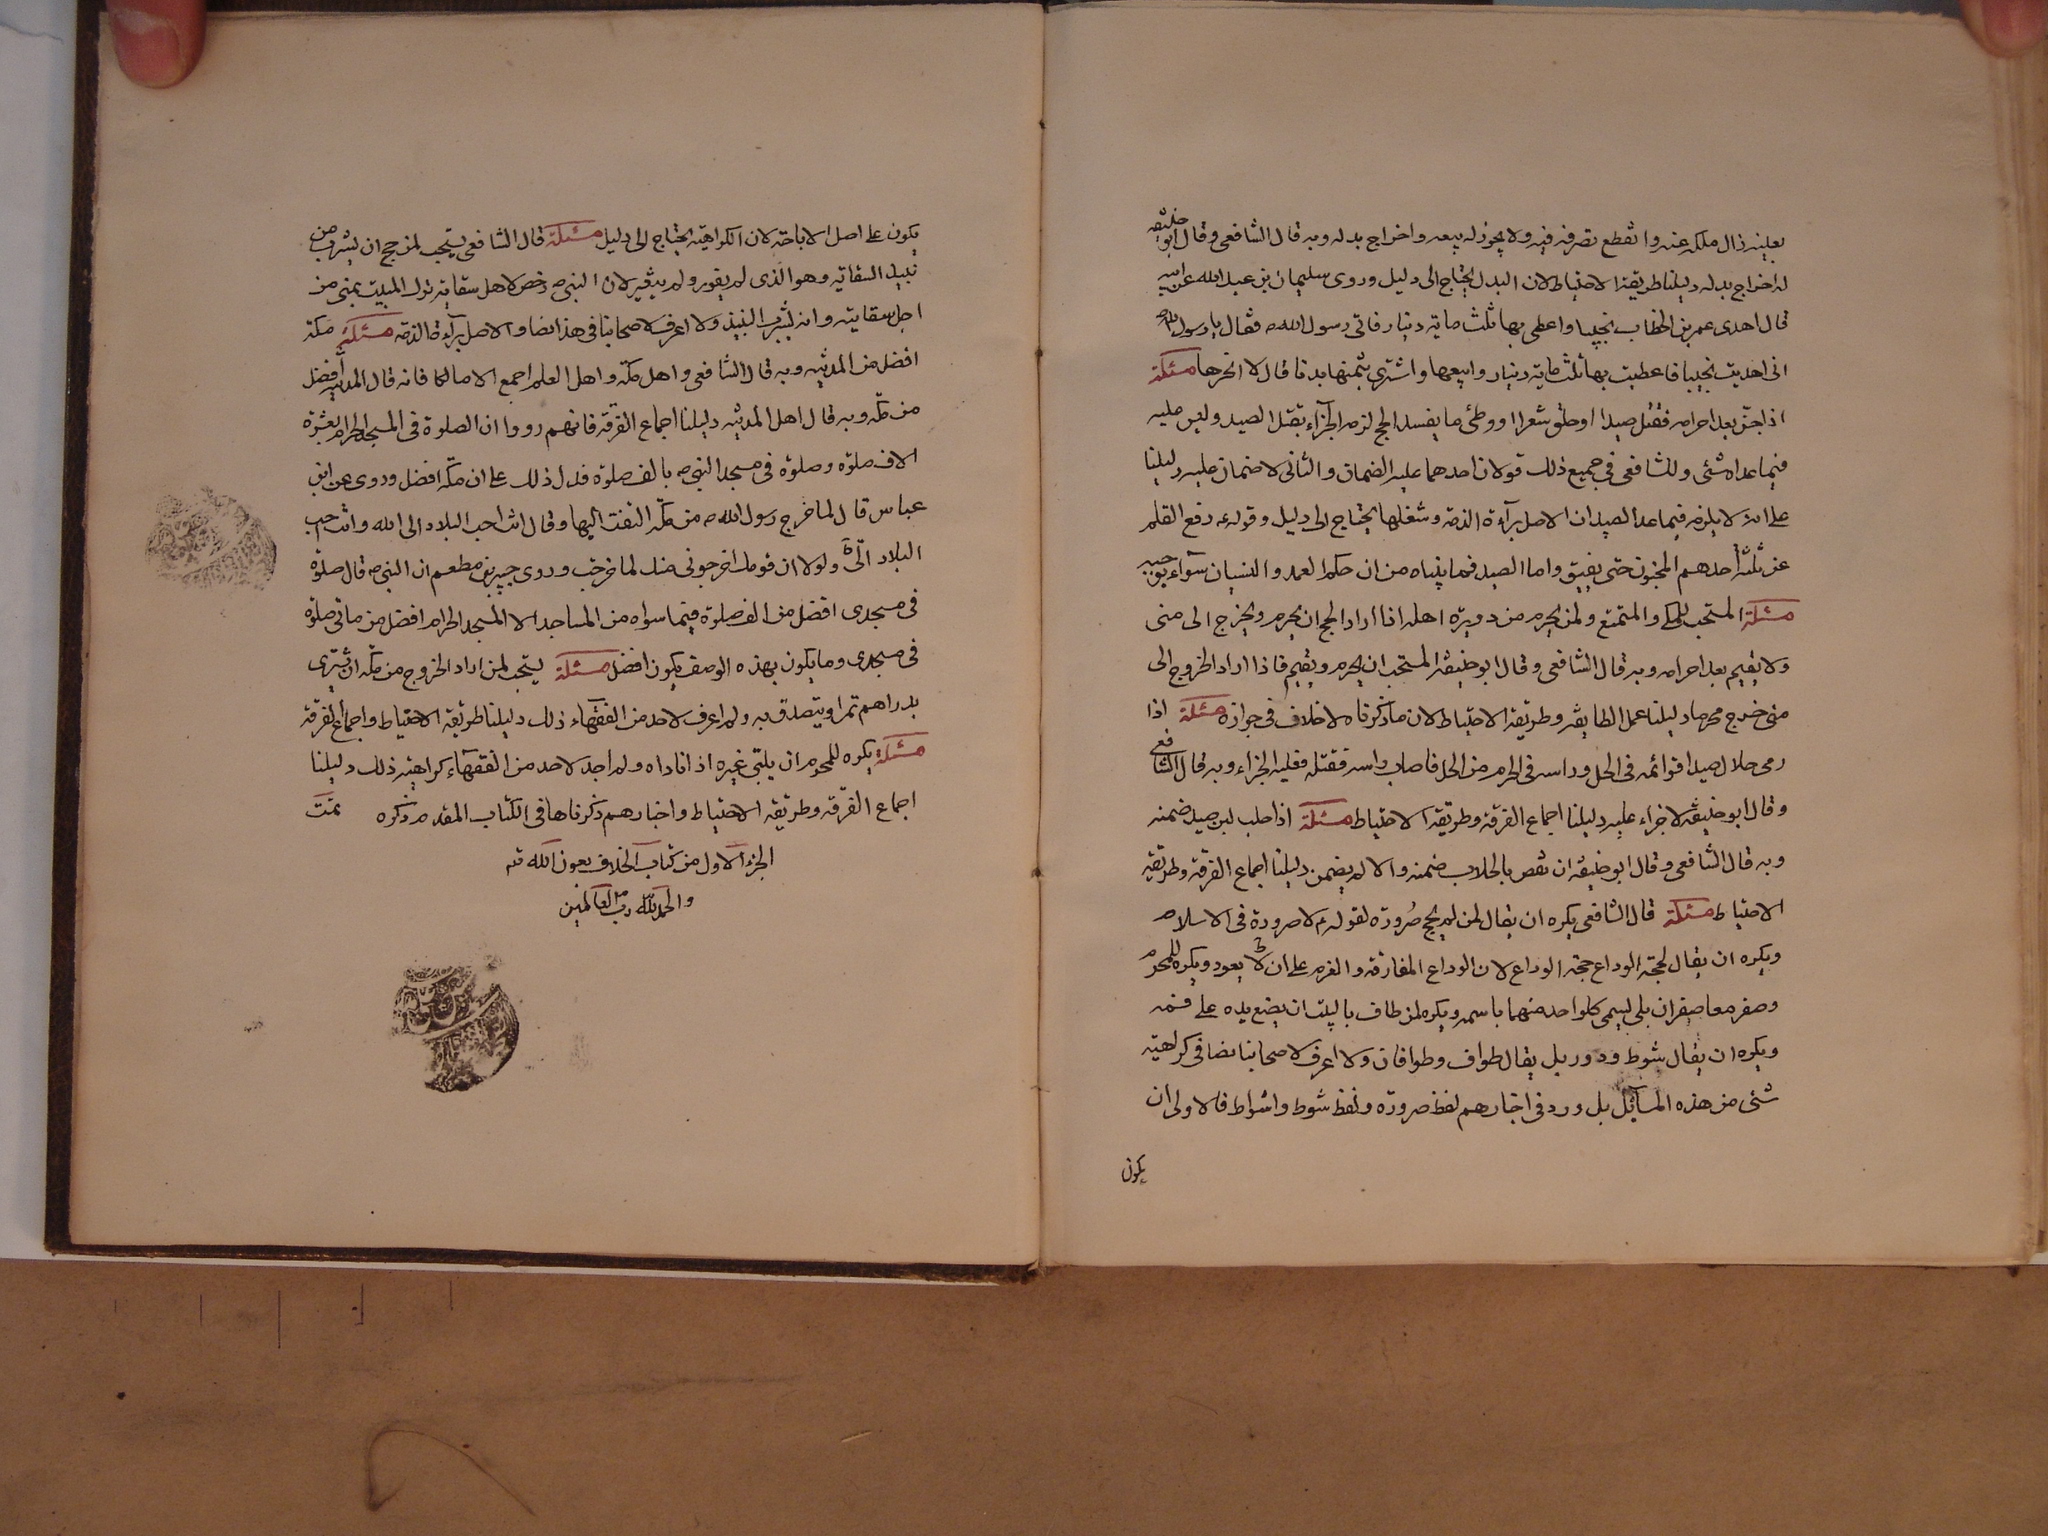 بعينه زال ملكه عنه وانقطع تصرفه فيه ولا يجوز له بيعه واخراج بدله وبه قال الشافعى وقال ابو حنيفه
له اخراج بدله دليلنا طريقة الاحتياط لان البدل يحتاج الى دليل وروى سليمان بن عبد الله عن ابيه
قال اهدى عمر بن الخطاب نجيبا واعطى بها ثلث ماية دينار فاتى رسول الله ص فقال يا رسول الله
انى اهديت نجيبا فاعطيت بها ثلث ماية دينار وابيعها واشترى بثمنها بدنا قال لا انحرها مسئلة
اذا جن بعد احرامه فقتل صيدا او حلق شعرا او وطئ ما يفسد الحج لزمه الجزآء بقتل الصيد وليس عليه
فيما عداه شئى وللشافعى فى جميع ذلك قولان احدهما عليه الضمان والثانى لا ضمان عليه دليلنا
على انه لا يلزمه فيما عدا الصيد ان الاصل برآءة الذمة وشغلها يحتاج الى دليل وقوله ع رفع القلم
عن ثلثة احدهم المجنون حتى يفيق واما الصيد فما بيناه من ان حكم العمد والنسيان سوآء يوجبه
مسئلة المستحب للمكى والمتمتع ولمن يحرم من دويرة اهله اذا اراد الحج ان يحرم ويخرج الى منى
ولا يقيم بعد احرامه وبه قال الشافعى وقال ابو حنيفة المستحب ان يحرم ويقيم فاذا اراد الخروج الى
منى خرج محرما دليلنا عمل الطايفة وطريقة الاحتياط لان ما ذكرناه لا خلاف فى جوازه مسئلة اذا
رمى حلال صيدا قوائمه فى الحل وراسه فى الحرم من الحل فاصاب راسه فقتله فعليه الجزاء وبه قال الشافعى
وقال ابو حنيفة لا جزاء عليه دليلنا اجماع الفرقة وطريقة الاحتياط مسئلة اذا حلب لبن صيد ضمنه
وبه قال الشافعى وقال ابو حنيفة ان نقص بالحلاب ضمنه والا لم يضمن دليلنا اجماع الفرقة وطريقة
الاحتياط مسئلة قال الشافعى يكره ان يقال لمن لم يحج صرورة لقوله ع لا صرورة فى الاسلام
ويكره ان يقال لحجة الوداع حجة الوداع لان الوداع المفارقة والعزم على ان لا يعود ويكره للمحرم
وصفر معا صفران بلى يسمى كلواحد منهما باسمه ويكره لمن طاف بالبيت ان يضع يده على فمه
ويكره ان يقال شوط ودور بل يقال طواف وطوافان ولا اعرف لاصحابنا نصا فى كراهية
شئى من هذه المسآئل بل ورد فى اخبارهم لفظ صرورة ولفظ شوط واشواط فالاولى ان
يكون
يكون على اصل الاباحة لان الكراهية يحتاج الى دليل مسئلة قال الشافعى يستحب لمن حج ان يشرب من
نبيذ السقاية وهو الذى لم يفور ولم يتغير لان النبى ص رخص لاهل سقاية ترك المبيت بمنى من
اجل سقايته وانه يشرب النبيذ ولا اعرف لاصحابنا فى هذا نصا والاصل برآءة الذمة مسئلة مكة
افضل من المدينة وبه قال الشافعى واهل مكة واهل العلم اجمع الا مالكا فانه قال المدينة افضل
من مكة وبه قال اهل المدينة دليلنا اجماع الفرقة فانهم رووا ان الصلوة فى المسجد الحرام بعشرة
الاف صلوة وصلوة فى مسجد النبى ص بالف صلوة فدل ذلك على ان مكة افضل وروى عن ابن
عباس قال لما خرج رسول الله ص من مكة التفت اليها وقال انت احب البلاد الى الله وانت احب
البلاد الىّ ولولا ان قومك اخرجونى منك لما خرجت وروى جبير بن مطعم ان النبى ص قال صلوة
فى مسجدى افضل من الف صلوة فيما سواه من المساجد الا المسجد الحرام افضل من ماتى صلوة
فى مسجدى وما يكون بهذه الوصف يكون افضل مسئلة يستحب لمن اراد الخروج من مكة ان يشترى
بدراهم تمرا ويتصدق به ولم اعرف لاحد من الفقهاء ذلك دليلنا طريقة الاحتياط واجماع الفرقة
مسئلة يكره للمحرم ان يلبى غيره اذا ناداه ولم اجد لاحد من الفقهاء كراهية ذلك دليلنا
اجماع الفرقة وطريقة الاحتياط واخبارهم ذكرناها فى الكتاب المقدم ذكره تمت
الجزء الاول من كتاب الخلاف بعون الله
والحمد لله رب العالمين